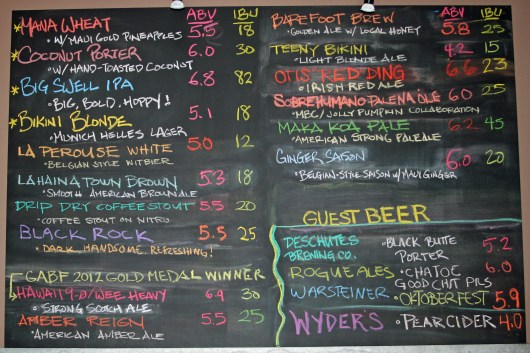 ABV IBU
*Mana Wheat 5.5 18
• w/Maui Gold Pineapples
*Coconut Porter 6.0 30
• w/Hand-Toasted Coconut
*Big Swell IPA 6.8 82
• Big, Bold, Hoppy!
*Bikini Blonde 5.1 18
• Munich Helles Lager
La Perouse White 5.0 12
• Belgian Style Witbier
Lahaina Town Brown 5.3 18
• Smooth American Brown Ale
Drip Dry Coffee Stout 5.5 20
• Coffee Stout on Nitro
Black Rock 5.5 25
• Dark, Handsome, Refreshing!
GABF 2012 Gold Medal Winner
Hawaii 9-0/Wee Heavy 6.9 30
• Strong Scotch Ale
Amber Reign 5.5 25
• American Amber Ale
ABV IBU
Barefoot Brew 5.8 23
• Golden Ale w/Local Honey
Teeny Bikini 4.2 15
• Light Blonde Ale
Otis Red Ding 6.6 23
• Irish Red Ale
Sobrehumano Palena Ole 6.0 25
• MBC/Jolly Pumpkin Collaboration
Maka Koa Pale 6.2 45
• American Strong Pale Ale
Ginger Saison 6.0 20
• Belgian-Style Saison w/Maui Ginger
Guest Beer
Deschutes Brewing Co. • Black Butte Porter 5.2
Rogue Ales • Chatoe Good Chit Pils 6.0
Warsteiner • Oktoberfest 5.9
Wyder's • Pear Cider 4.0